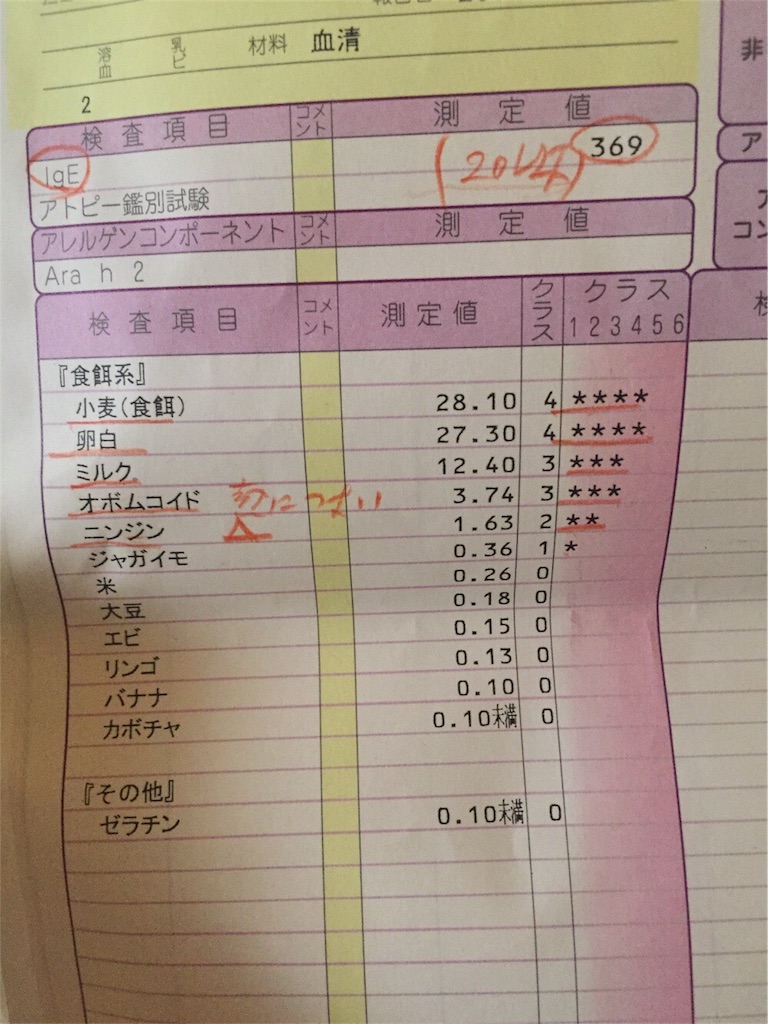 溶血 乳ビ 材料 血清
2
検査項目 コメント 測定値
IgE 369
アトピー鑑別試験
アレルゲンコンポーネント コメント 測定値
Ara h 2
検査項目 コメント 測定値 クラス クラス
1 2 3 4 5 6
『食餌系』
小麦(食餌) 28.10 4 ****
卵白 27.30 4 ****
ミルク 12.40 3 ***
オボムコイド 3.74 3 ***
ニンジン 1.63 2 **
ジャガイモ 0.36 1 *
米 0.26 0
大豆 0.18 0
エビ 0.15 0
リンゴ 0.13 0
バナナ 0.10 0
カボチャ 0.10未満 0
『その他』
ゼラチン 0.10未満 0
非
ア
コン